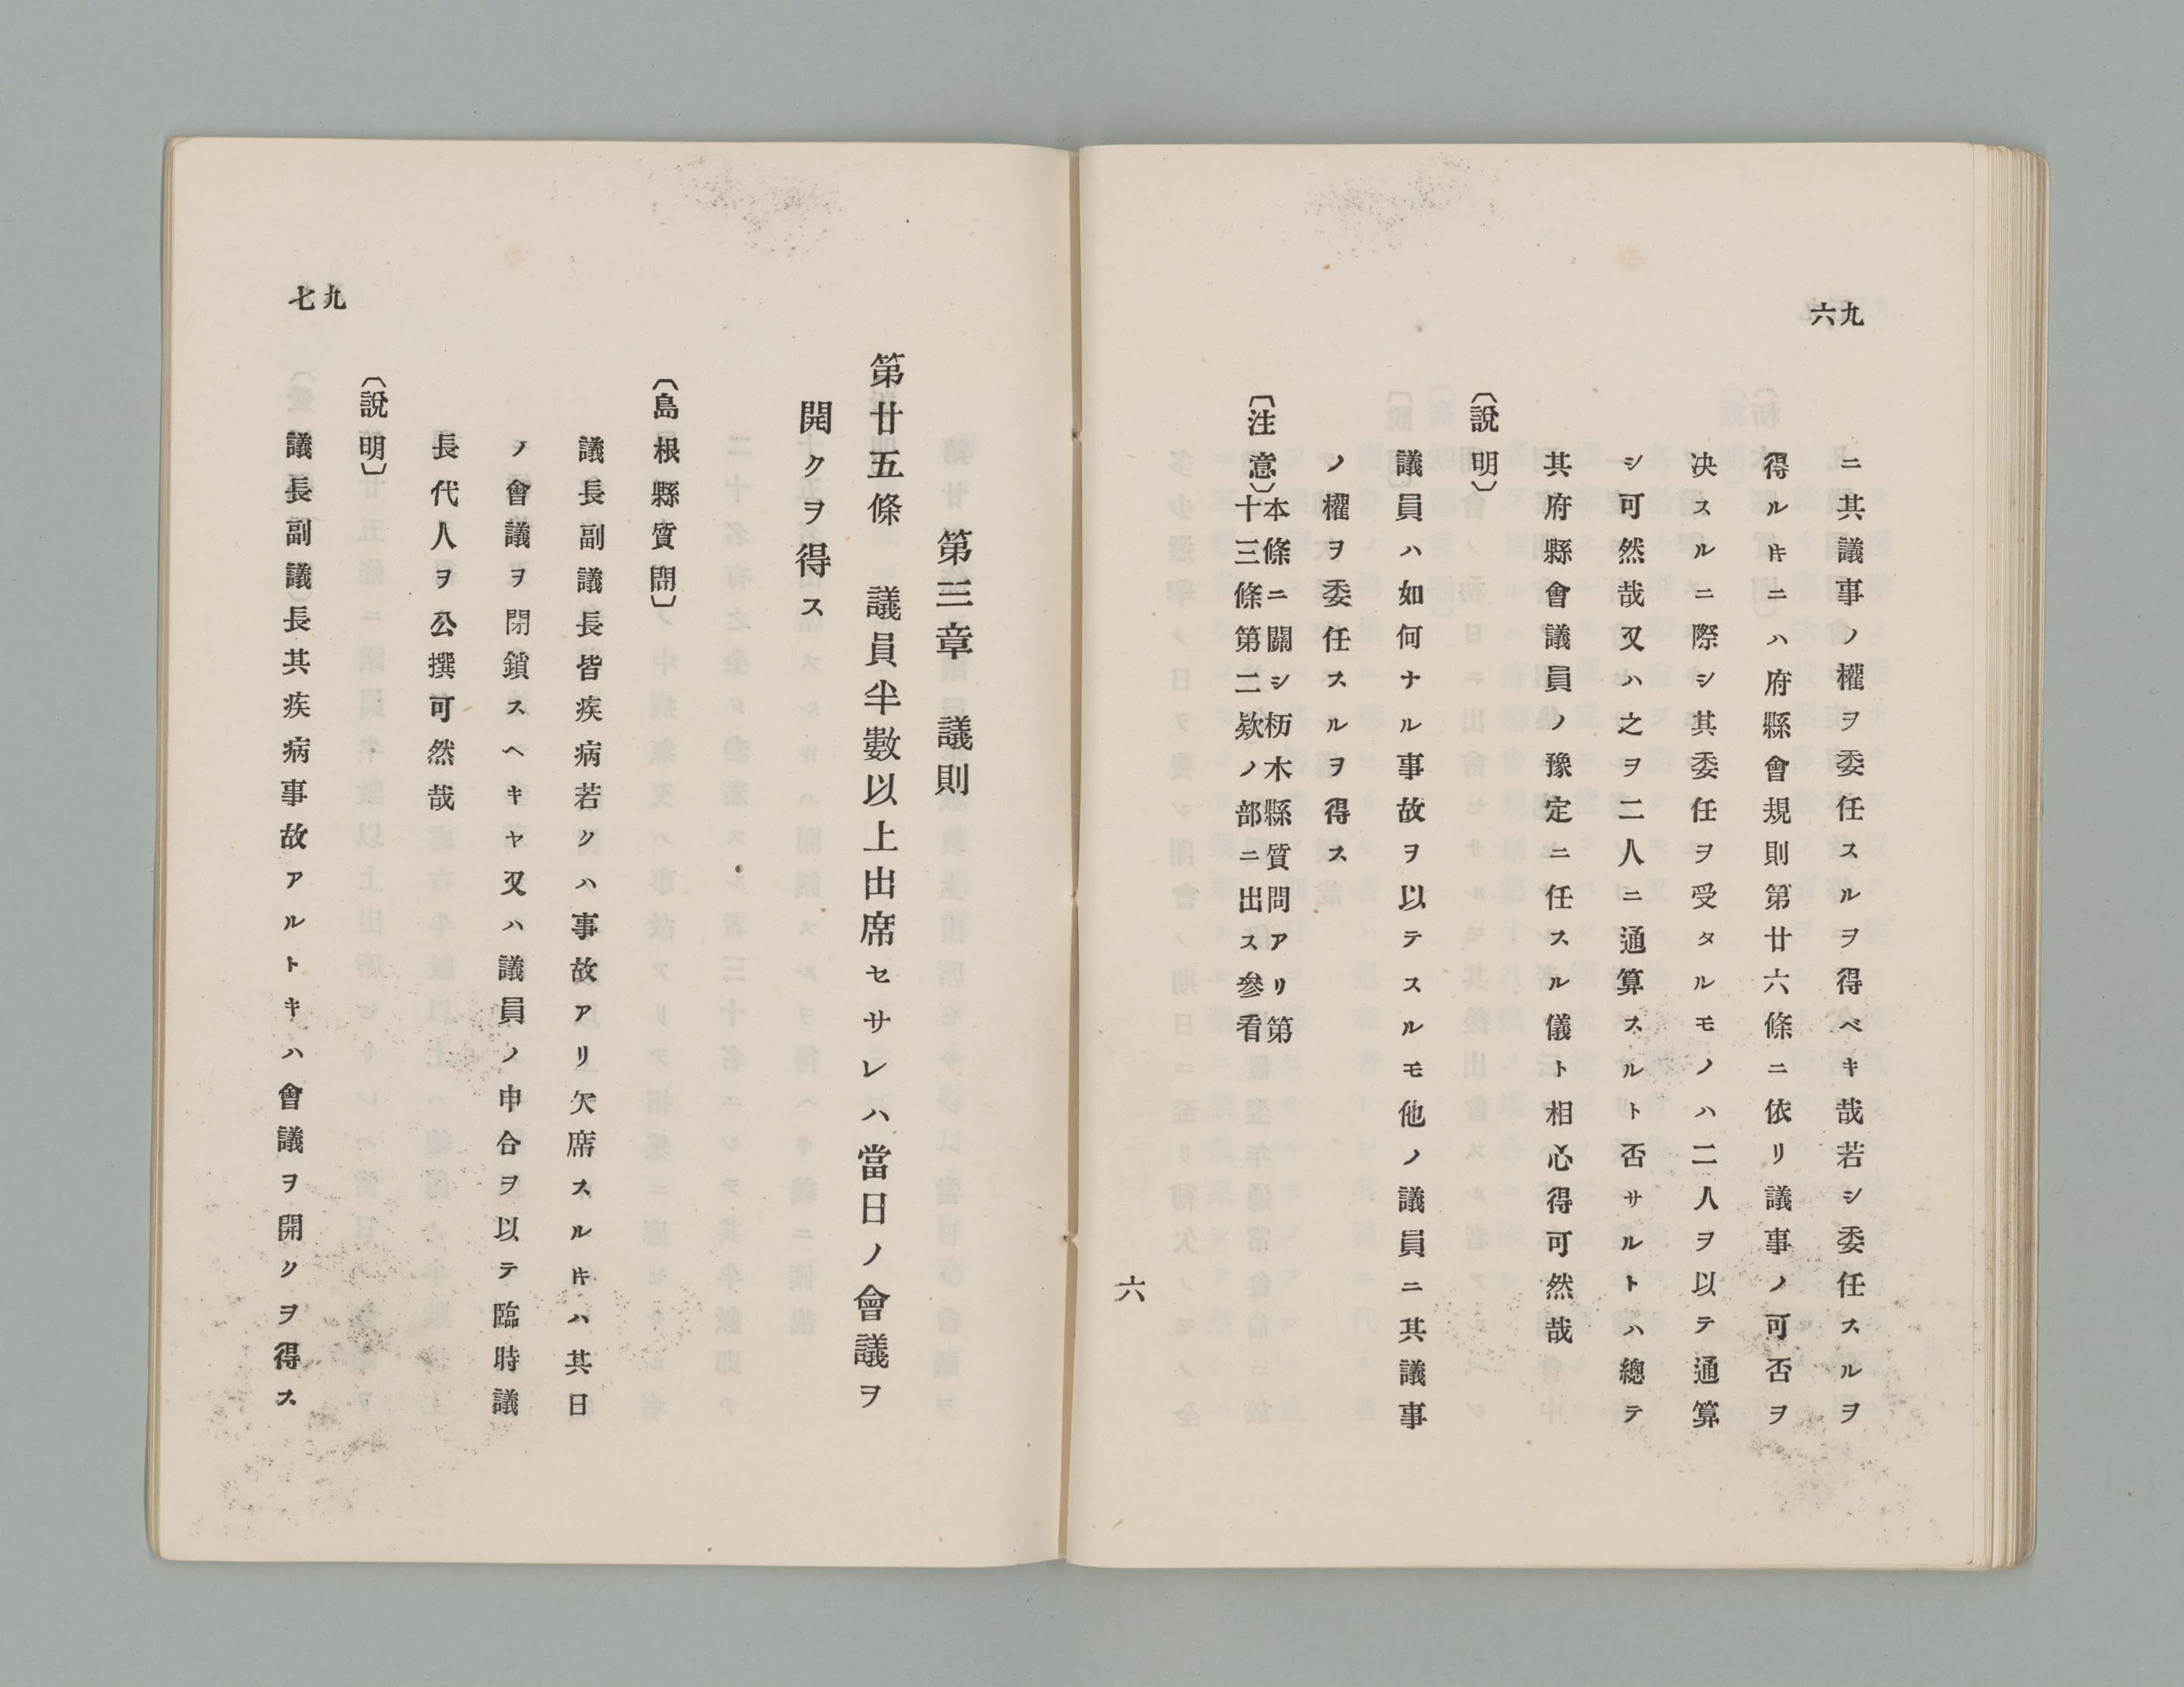 九六
ニ其議事ノ權ヲ委任スルヲ得ベキ哉若シ委任スルヲ
得ル𪜈ニハ府縣會規則第廿六條ニ依リ議事ノ可否ヲ
决スルニ際シ其委任ヲ受タルモノハ二人ヲ以テ通算
シ可然哉又ハ之ヲ二人ニ通算スルト否サルトハ總テ
其府縣會議員ノ豫定ニ任スル儀ト相心得可然哉
〔說明〕
議員ハ如何ナル事故ヲ以テスルモ他ノ議員ニ其議事
ノ權ヲ委任スルヲ得ス
〔注意〕本條ニ關シ栃木縣質問アリ第
十三條第二欵ノ部ニ出ス參看
六
第三章 議則
第廿五條 議員半數以上出席セサレハ當日ノ會議ヲ
開クヲ得ス
〔島根縣質問〕
議長副議長皆疾病若クハ事故アリ欠席スル𪜈ハ其日
ノ會議ヲ閉鎖スヘキヤ又ハ議員ノ申合ヲ以テ臨時議
長代人ヲ公撰可然哉
〔說明〕
議長副議長其疾病事故アルトキハ會議ヲ開クヲ得ス
九七